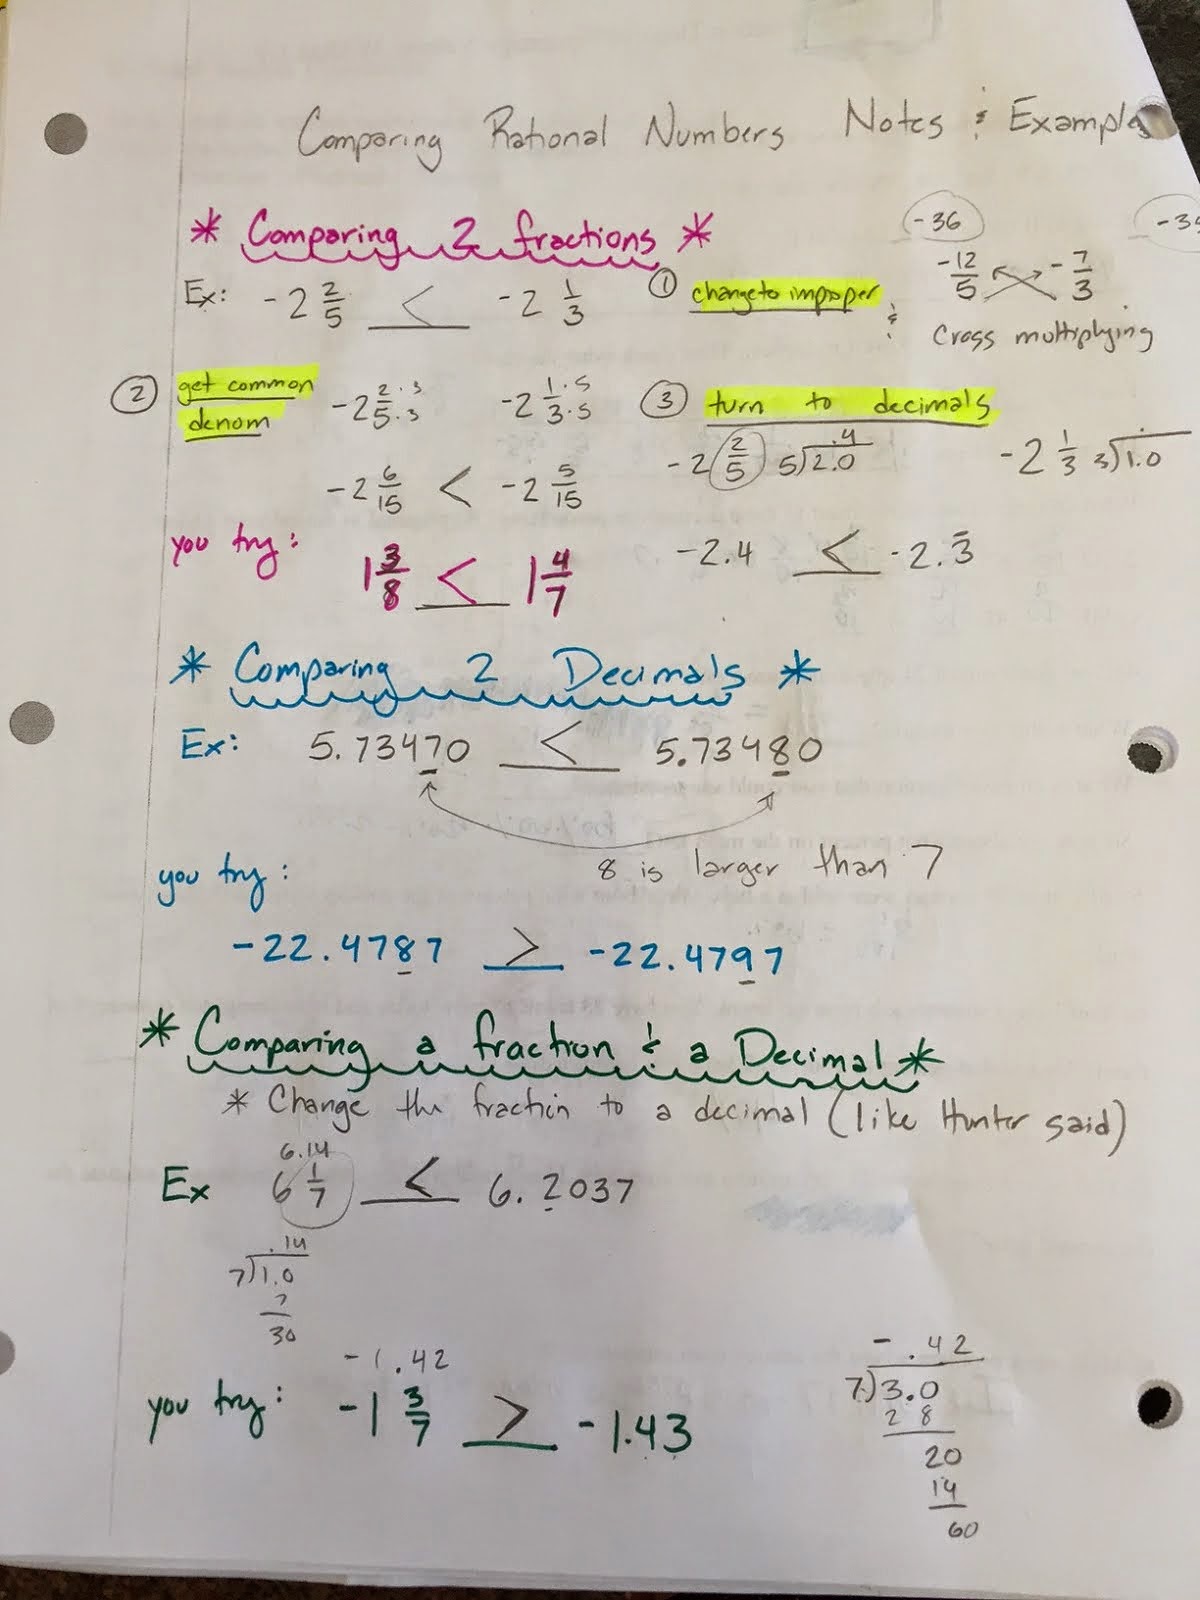 Comparing Rational Numbers Notes & Example
* Comparing 2 fractions *
Ex: -2 2/5 < -2 1/3
① change to improper
-36
-12/5 -7/3
& Cross multiplying
② get common denom
-2 2·3/5·3 -2 1·5/3·5
-2 6/15 < -2 5/15
③ turn to decimals
-2 2/5 5)2.0 .4 -2 1/3 3)1.0
-2.4 < -2.3̅
you try:
1 3/8 < 1 4/7
* Comparing 2 Decimals *
Ex: 5.73470 < 5.73480
8 is larger than 7
you try:
-22.4787 > -22.4797
* Comparing a fraction & a Decimal *
* Change the fraction to a decimal (like Hunter said)
6.14
Ex 6 1/7 < 6.2037
.14
7)1.0
7
30
-1.42
you try: -1 3/7 > -1.43
-.42
7)3.0
2 8
20
14
60